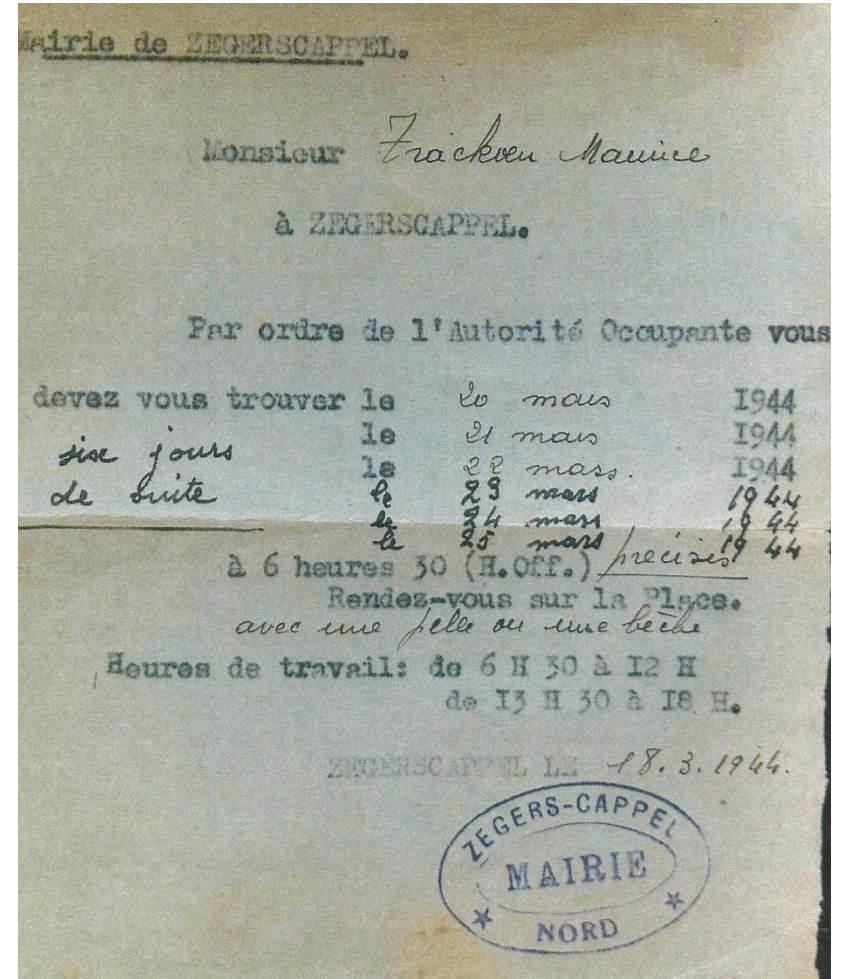 Mairie de ZEGERSCAPPEL.
Monsieur Trackoen Maurice
à ZEGERSCAPPEL.
Par ordre de l'Autorité Occupante vous
devez vous trouver le 20 mars 1944
le 21 mars 1944
six jours
le 22 mars. 1944
de suite
le 23 mars 1944
le 24 mars 1944
le 25 mars 1944
à 6 heures 30 (H.Off.) précises
Rendez-vous sur la Place.
avec une pelle ou une bêche
Heures de travail: de 6 H 30 à I2 H
de I3 H 30 à I8 H.
ZEGERSCAPPEL LE 18.3.1944.
ZEGERS-CAPPEL
MAIRIE
NORD